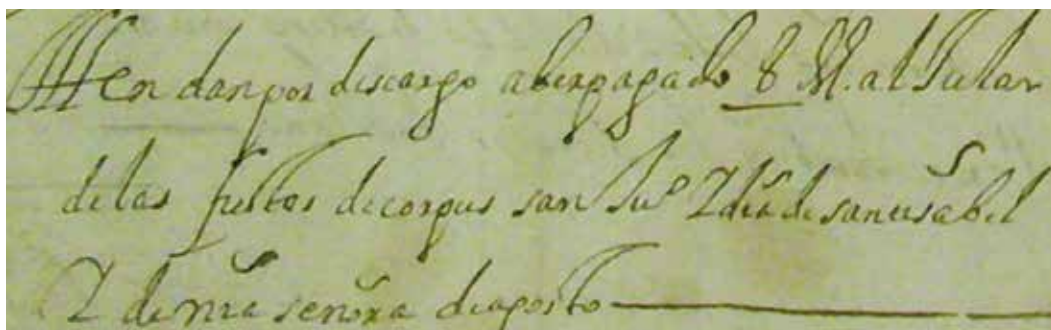 Itten dan por discargo aber pagado 8 Rl. al Jular
de las fiestas de corpus san Juº y dia de santa ysabel
y de nra señora de agosto